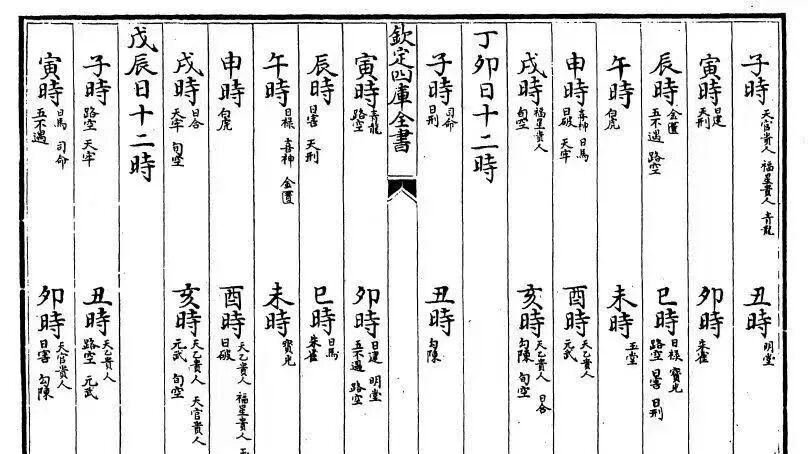 子時 天官貴人 福星貴人 青龍 丑時 明堂
寅時 日建 天刑 卯時 朱雀
辰時 金匱 五不遇 路空 巳時 日祿 寶光 路空 日害 日刑
午時 白虎 未時 玉堂
申時 喜神 日馬 日破 天牢 酉時 天乙貴人 元武
戌時 福星貴人 旬空 亥時 天乙貴人 日合 勾陳 旬空
丁卯日十二時
子時 司命 日刑 丑時 勾陳
欽定四庫全書
寅時 青龍 路空 卯時 日建 明堂 五不遇 路空
辰時 日害 天刑 巳時 日馬 朱雀
午時 日祿 喜神 金匱 未時 寶光
申時 白虎 酉時 天乙貴人 福星貴人 日破
戌時 日合 天牢 旬空 亥時 天乙貴人 天官貴人 元武 旬空
戊辰日十二時
子時 路空 天牢 丑時 天乙貴人 路空 元武
寅時 日馬 司命 五不遇 卯時 天官貴人 日害 勾陳